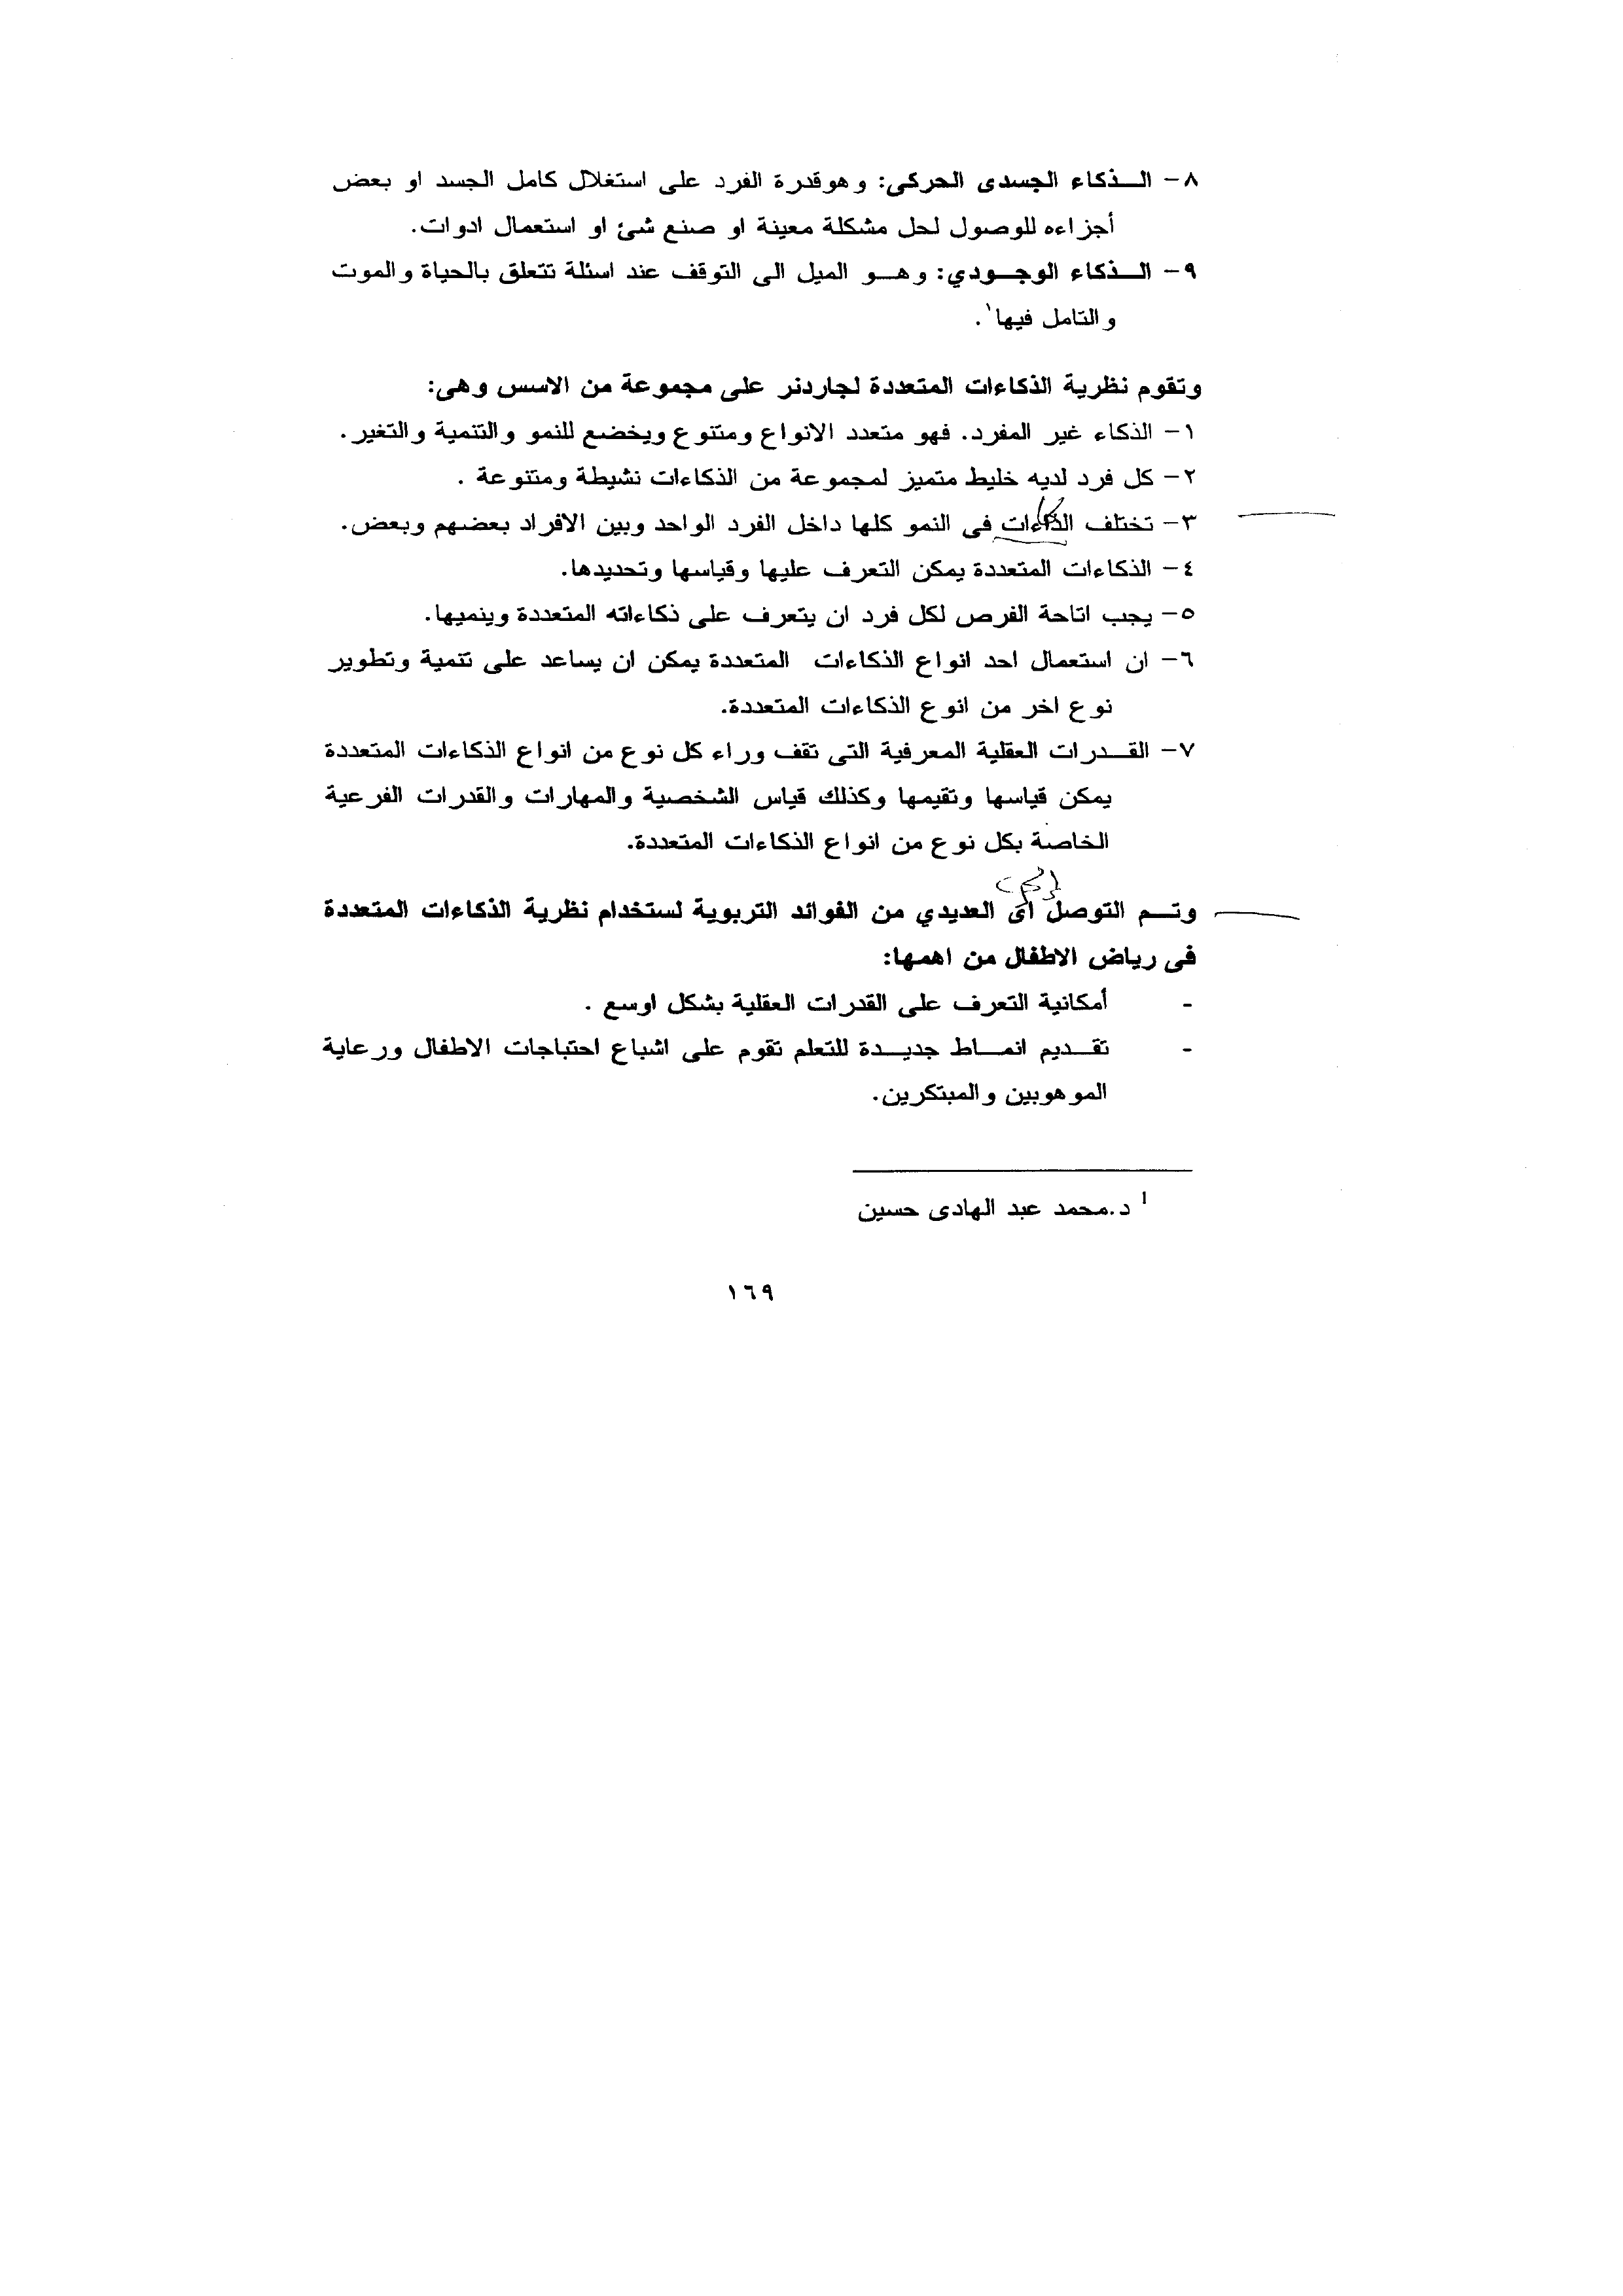 ٨- الــذكاء الجسدى الحركى: وهوقدرة الفرد على استغلال كامل الجسد او بعض
أجزاءه للوصول لحل مشكلة معينة او صنع شئ او استعمال ادوات.
٩- الــذكاء الوجــودي: وهــو الميل الى التوقف عند اسئلة تتعلق بالحياة والموت
والتامل فيها١.
وتقوم نظرية الذكاءات المتعددة لجاردنر على مجموعة من الاسس وهى:
١- الذكاء غير المفرد. فهو متعدد الانواع ومتنوع ويخضع للنمو والتنمية والتغير.
٢- كل فرد لديه خليط متميز لمجموعة من الذكاءات نشيطة ومتنوعة .
٣- تختلف الذكاءات فى النمو كلها داخل الفرد الواحد وبين الافراد بعضهم وبعض.
٤- الذكاءات المتعددة يمكن التعرف عليها وقياسها وتحديدها.
٥- يجب اتاحة الفرص لكل فرد ان يتعرف على ذكاءاته المتعددة وينميها.
٦- ان استعمال احد انواع الذكاءات المتعددة يمكن ان يساعد على تنمية وتطوير
نوع اخر من انوع الذكاءات المتعددة.
٧- القــدرات العقلية المعرفية التى تقف وراء كل نوع من انواع الذكاءات المتعددة
يمكن قياسها وتقيمها وكذلك قياس الشخصية والمهارات والقدرات الفرعية
الخاصة بكل نوع من انواع الذكاءات المتعددة.
وتــم التوصل اى العديدي من الفوائد التربوية لستخدام نظرية الذكاءات المتعددة
فى رياض الاطفال من اهمها:
- أمكانية التعرف على القدرات العقلية بشكل اوسع .
- تقــديم انمــاط جديــدة للتعلم تقوم على اشباع احتباجات الاطفال ورعاية
الموهوبين والمبتكرين.
1 د.محمد عبد الهادى حسين
١٦٩